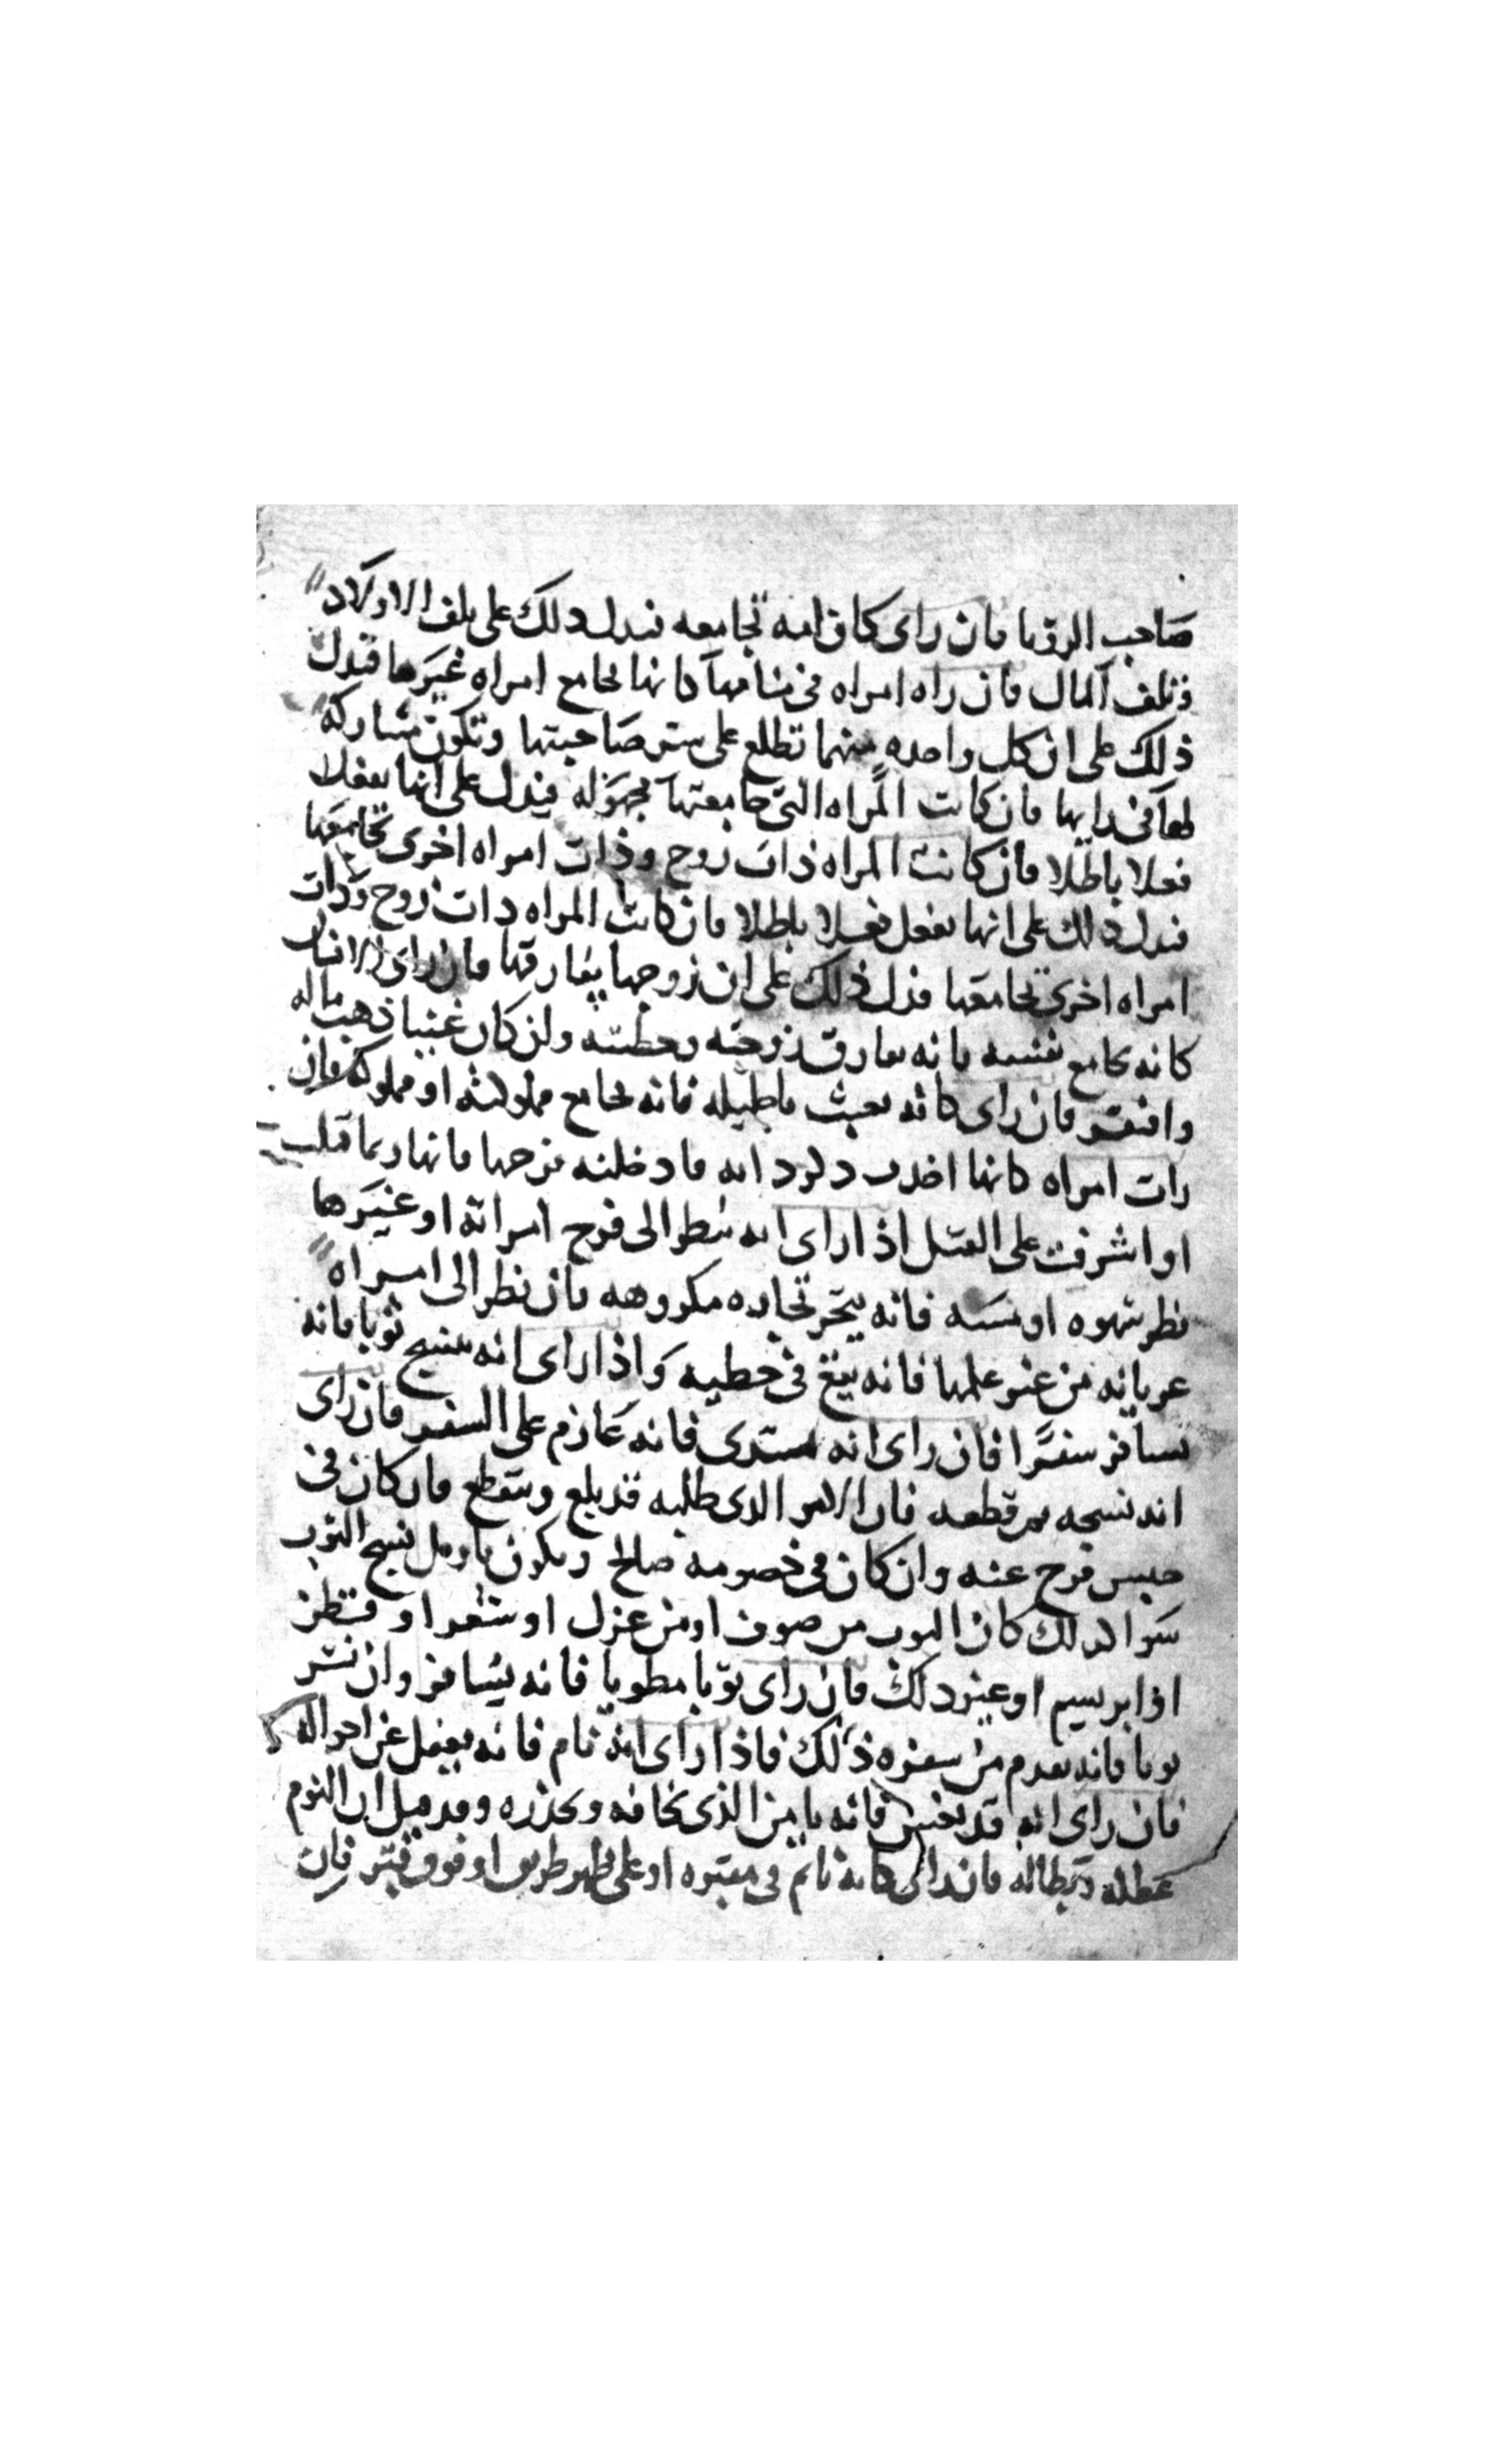 صاحب الرويا فان راى كان امه تجامعه فيدل ذلك على تلف الاولاد
وتلف المال فان راه امراه في منامها كانها تجامع امراه غيرها فيدل
ذلك على ان كل واحده منهما تطلع على ستر صاحبتها وتكون مشاركه
لها في رايها فان كانت المراه التي جامعتها مجهوله فيدل على انها تفعلا
فعلا باطلا فان كانت المراه ذات زوج وذات امراه اخرى تجامعها
فيدل ذلك على انها تفعل فعلا باطلا فان كانت المراه ذات زوج وذات
امراه اخرى تجامعها فدل ذلك على ان زوجها يفارقها فان راى الانسان
كانه يجامع نفسه فانه يفارق زوجته وان كان غنيا ذهب ماله
وافتقر فان راى كانه يعبث باحليله فانه يجامع مملوكته او مملوكه فان
رات امراه كانها اخدت فادخلته فرجها فانها ربما قتلت
او اشرفت على القتل اذا راى انه ينظر الى فرج امراته او غيرها
نظر شهوه او مسه فانه يتجر تجاره مكروهه فان نظر الى امراه
عريانه من غير علمها فانه يقع في خطيه واذا راى انه ينسج ثوبا فانه
يسافر سفرا فان راى انه فانه عازم على السفر فان راى
انه نسجه ثم قطعه فان الامر الذي طلبه قد بلغ وينقطع فان كان في
حبس فرج عنه وان كان في خصومه صالح ويكون تاويل نسج الثوب
سوا لذلك كان الثوب من صوف او من غزل او شعر او قطن
او ابريسيم او غير ذلك فان راى ثوبا مطويا فانه يسافر وان نشر
ثوبا فانه يقدم من سفره ذلك فاذا راى انه نام فانه يغفل عن احواله
فان راى انه قد نعس فانه يامن الذي يخافه ويحذره وقد قيل ان النوم
عطله وبطاله فان راى كانه نائم في مقبره او على ظهر طريق او فوق قبر فان